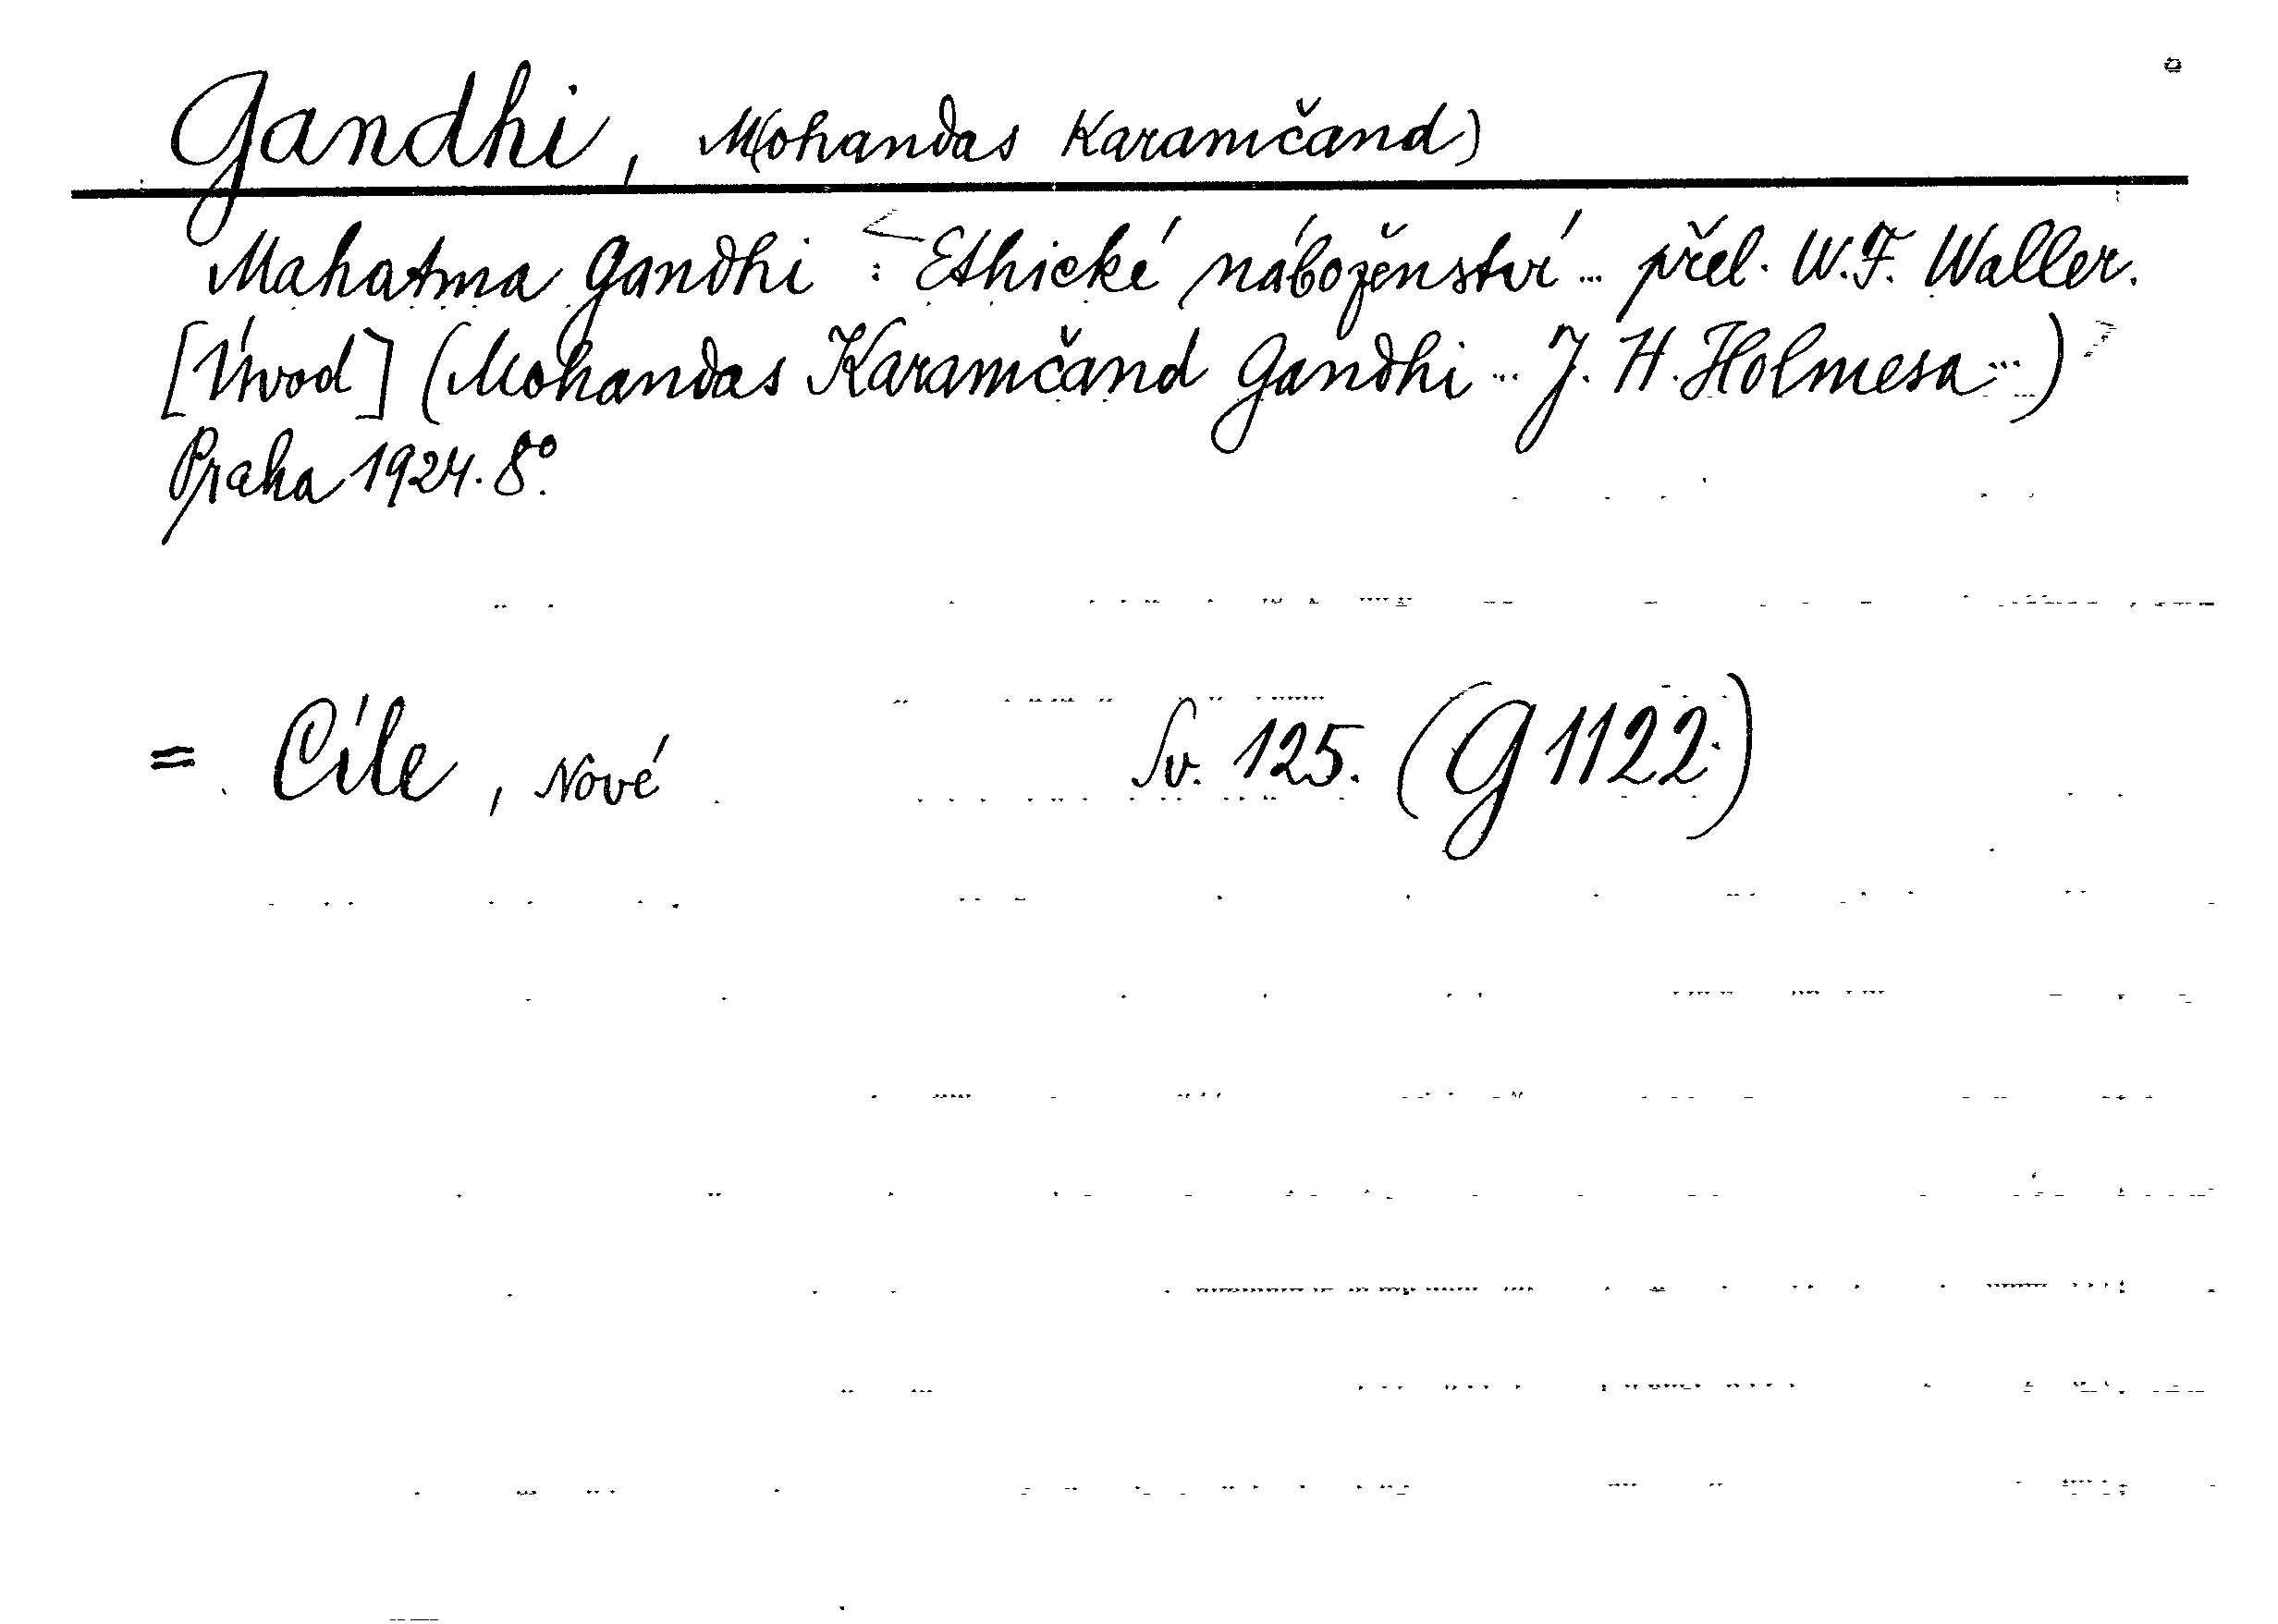 Gandhi, M(ohandas Karamčand)
Mahatma Gandhi : <Ethické náboženství ... přel. W. F. Waller.
[Úvod] (Mohandas Karamčand Gandhi ... J. H. Holmesa ...)>
Praha 1924. 8°.
= Cíle, Nové Sv. 125. (G 1122)